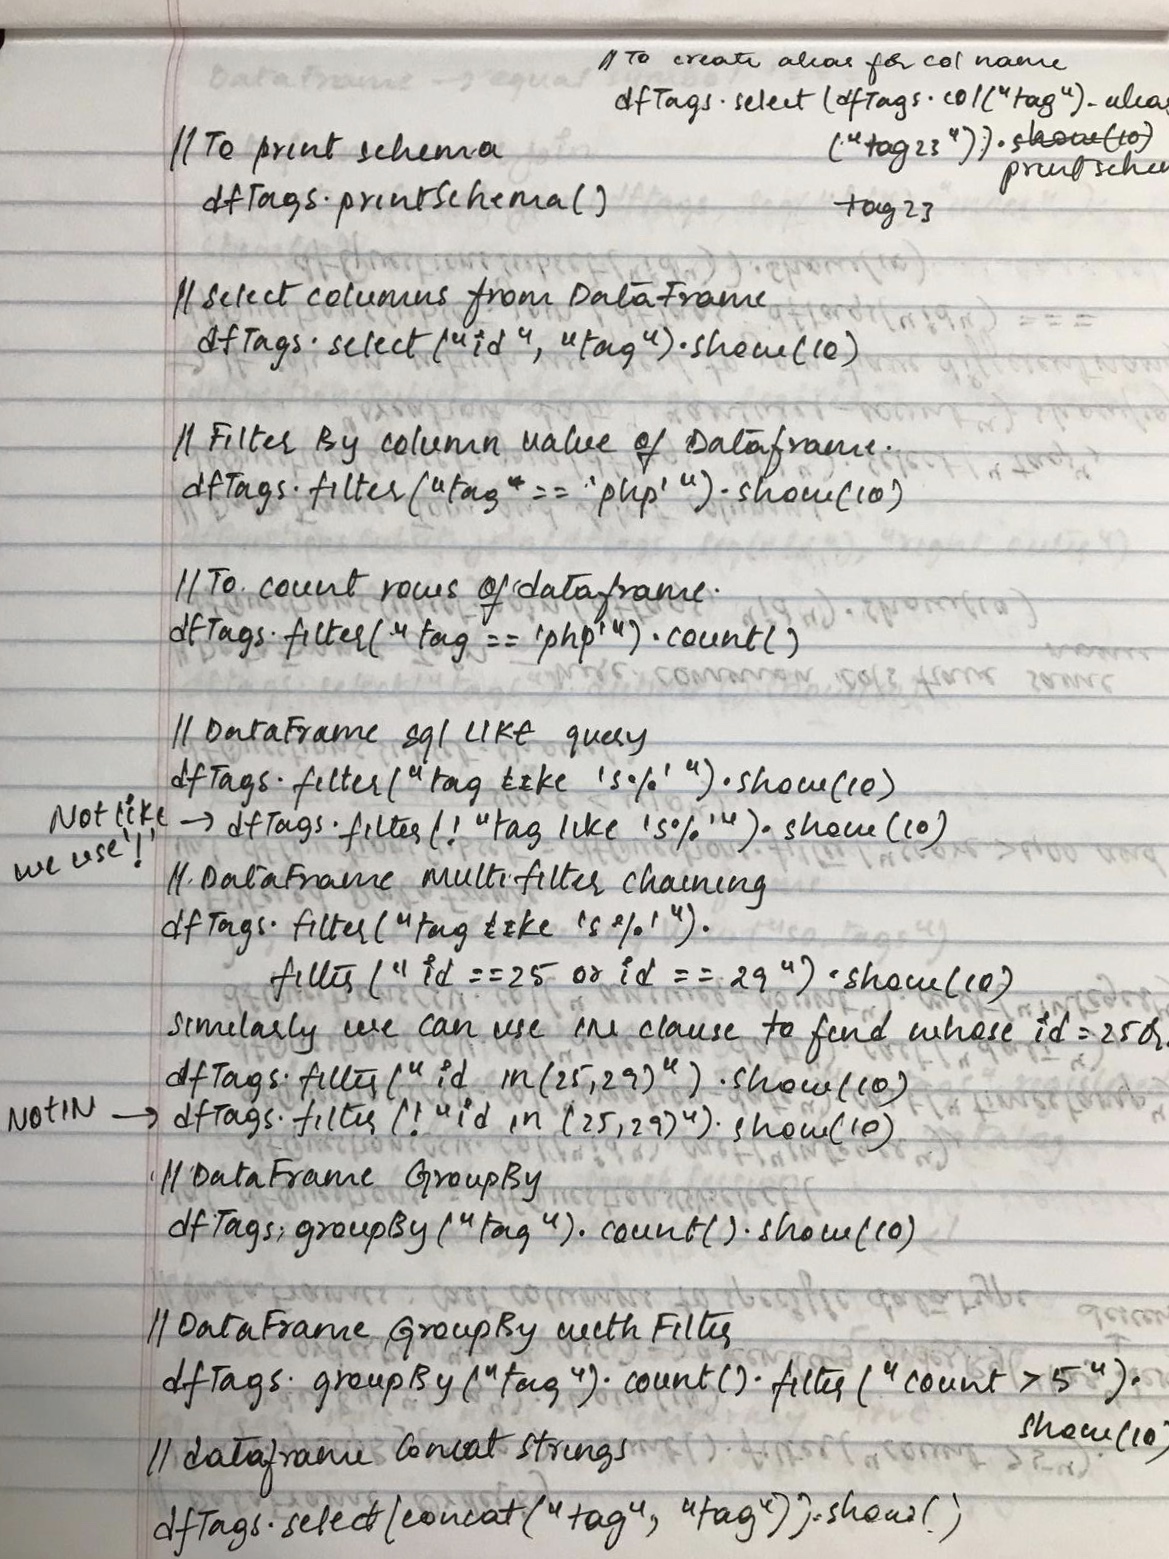 // To create alias for col name
dfTags.select(dfTags.col("tag").alias
("tag23")).show(10)
printschem
tag23
// To print schema
dfTags.printSchema()
// Select columns from DataFrame
dfTags.select("id", "tag").show(10)
// Filter By column value of Dataframe.
dfTags.filter("tag" == 'php'").show(10)
// To count rows of dataframe.
dfTags.filter("tag == 'php'").count()
// DataFrame sql LIKE query
dfTags.filter("tag like 's%'").show(10)
Not like → dfTags.filter(! "tag like 's%'").show(10)
we use '!'
// DataFrame multifilter chaining
dfTags.filter("tag like 's%'").
filter("id ==25 or id == 29").show(10)
Similarly we can use in clause to find whose id = 25 Or
dfTags.filter("id in(25,29)").show(10)
NotIN → dfTags.filter(! "id in (25,29)").show(10)
// DataFrame GroupBy
dfTags.groupBy("tag").count().show(10)
// DataFrame GroupBy with Filter
dfTags.groupBy("tag").count().filter("count > 5").
show(10)
// dataframe Concat Strings
dfTags.select(concat("tag", "tag")).show()